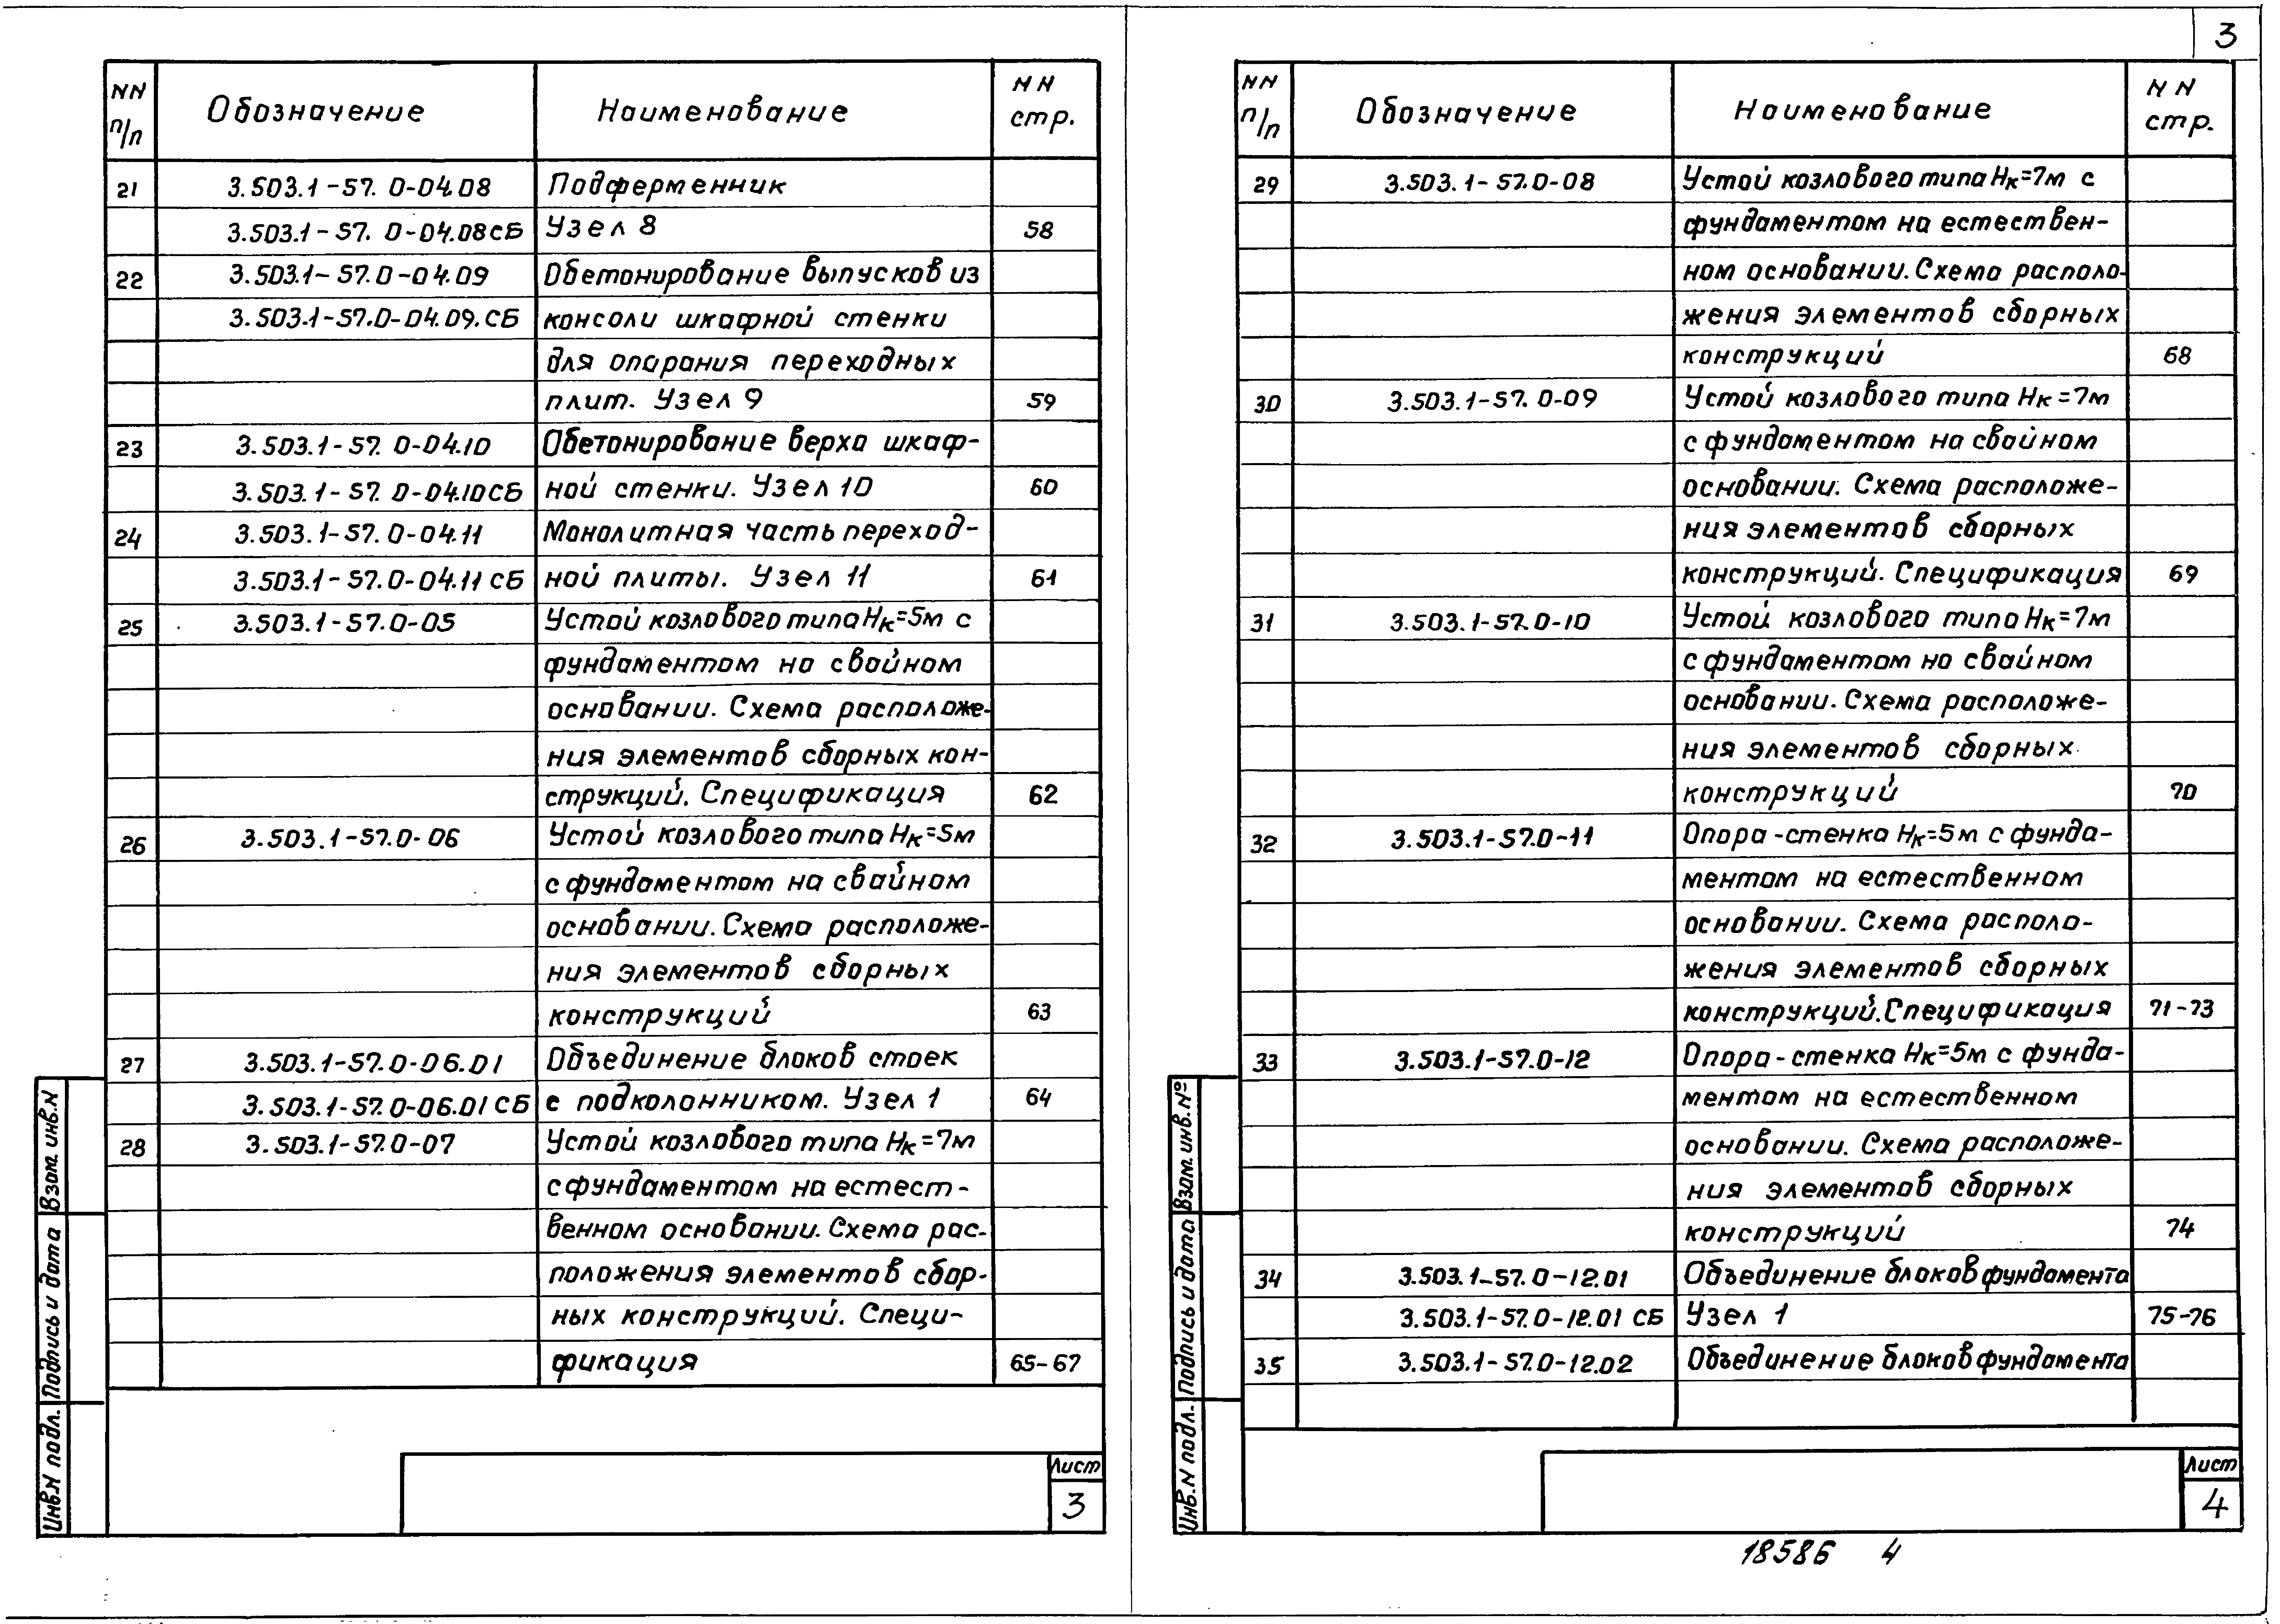 3
NN п/п Обозначение Наименование NN стр.
21 3.503.1-57.0-04.08 Подферменник
3.503.1-57.0-04.08СБ Узел 8 58
22 3.503.1-57.0-04.09 Обетонирование выпусков из
3.503.1-57.0-04.09.СБ консоли шкафной стенки
для опирания переходных
плит. Узел 9 59
23 3.503.1-57.0-04.10 Обетонирование верха шкаф-
3.503.1-57.0-04.10СБ ной стенки. Узел 10 60
24 3.503.1-57.0-04.11 Монолитная часть переход-
3.503.1-57.0-04.11 СБ ной плиты. Узел 11 61
25 3.503.1-57.0-05 Устой козлового типа Нк=5м с
фундаментом на свайном
основании. Схема расположе-
ния элементов сборных кон-
струкций. Спецификация 62
26 3.503.1-57.0-06 Устой козлового типа Нк=5м
с фундаментом на свайном
основании. Схема расположе-
ния элементов сборных
конструкций 63
27 3.503.1-57.0-06.01 Объединение блоков стоек
3.503.1-57.0-06.01 СБ с подколонником. Узел 1 64
28 3.503.1-57.0-07 Устой козлового типа Нк=7м
с фундаментом на естест-
венном основании. Схема рас-
положения элементов сбор-
ных конструкций. Специ-
фикация 65-67
Взам. инв.N
Подпись и дата
Инв.N подл.
Лист
3
NN п/п Обозначение Наименование NN стр.
29 3.503.1-57.0-08 Устой козлового типа Нк=7м с
фундаментом на естествен-
ном основании. Схема располо-
жения элементов сборных
конструкций 68
30 3.503.1-57.0-09 Устой козлового типа Нк=7м
с фундаментом на свайном
основании. Схема расположе-
ния элементов сборных
конструкций. Спецификация 69
31 3.503.1-57.0-10 Устой козлового типа Нк=7м
с фундаментом на свайном
основании. Схема расположе-
ния элементов сборных
конструкций 70
32 3.503.1-57.0-11 Опора-стенка Нк=5м с фунда-
ментом на естественном
основании. Схема располо-
жения элементов сборных
конструкций. Спецификация 71-73
33 3.503.1-57.0-12 Опора-стенка Нк=5м с фунда-
ментом на естественном
основании. Схема расположе-
ния элементов сборных
конструкций 74
34 3.503.1-57.0-12.01 Объединение блоков фундамента
3.503.1-57.0-12.01 СБ Узел 1 75-76
35 3.503.1-57.0-12.02 Объединение блоков фундамента
Взам. инв.№
Подпись и дата
Инв.N подл.
Лист
4
18586 4